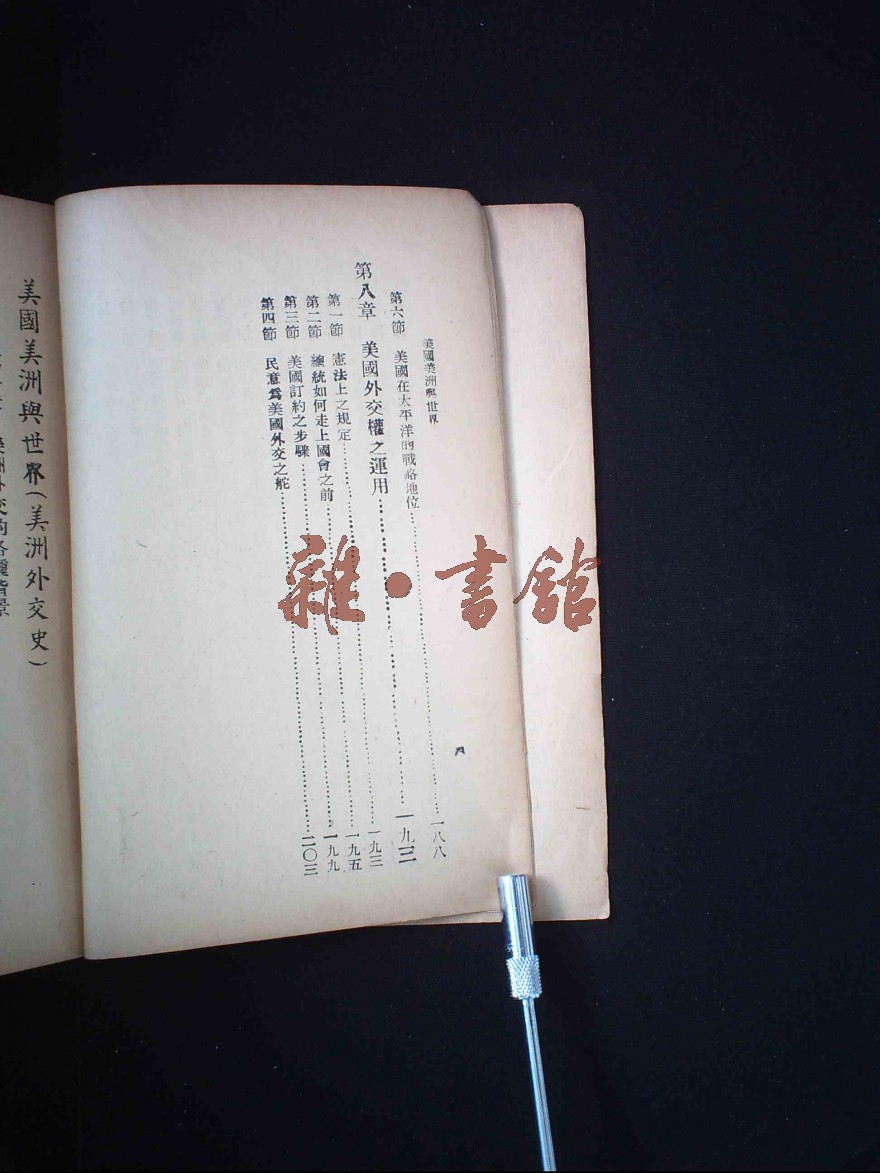 美國美洲與世界
第六節 美國在太平洋的戰略地位……一八八
第八章 美國外交權之運用……一九三
第一節 憲法上之規定……一九三
第二節 總統如何走上國會之前……一九五
第三節 美國訂約之步驟……一九九
第四節 民意爲美國外交之舵……二〇三
四
美國美洲與世界(美洲外交史)
美洲外交的各種背景
雜·書館